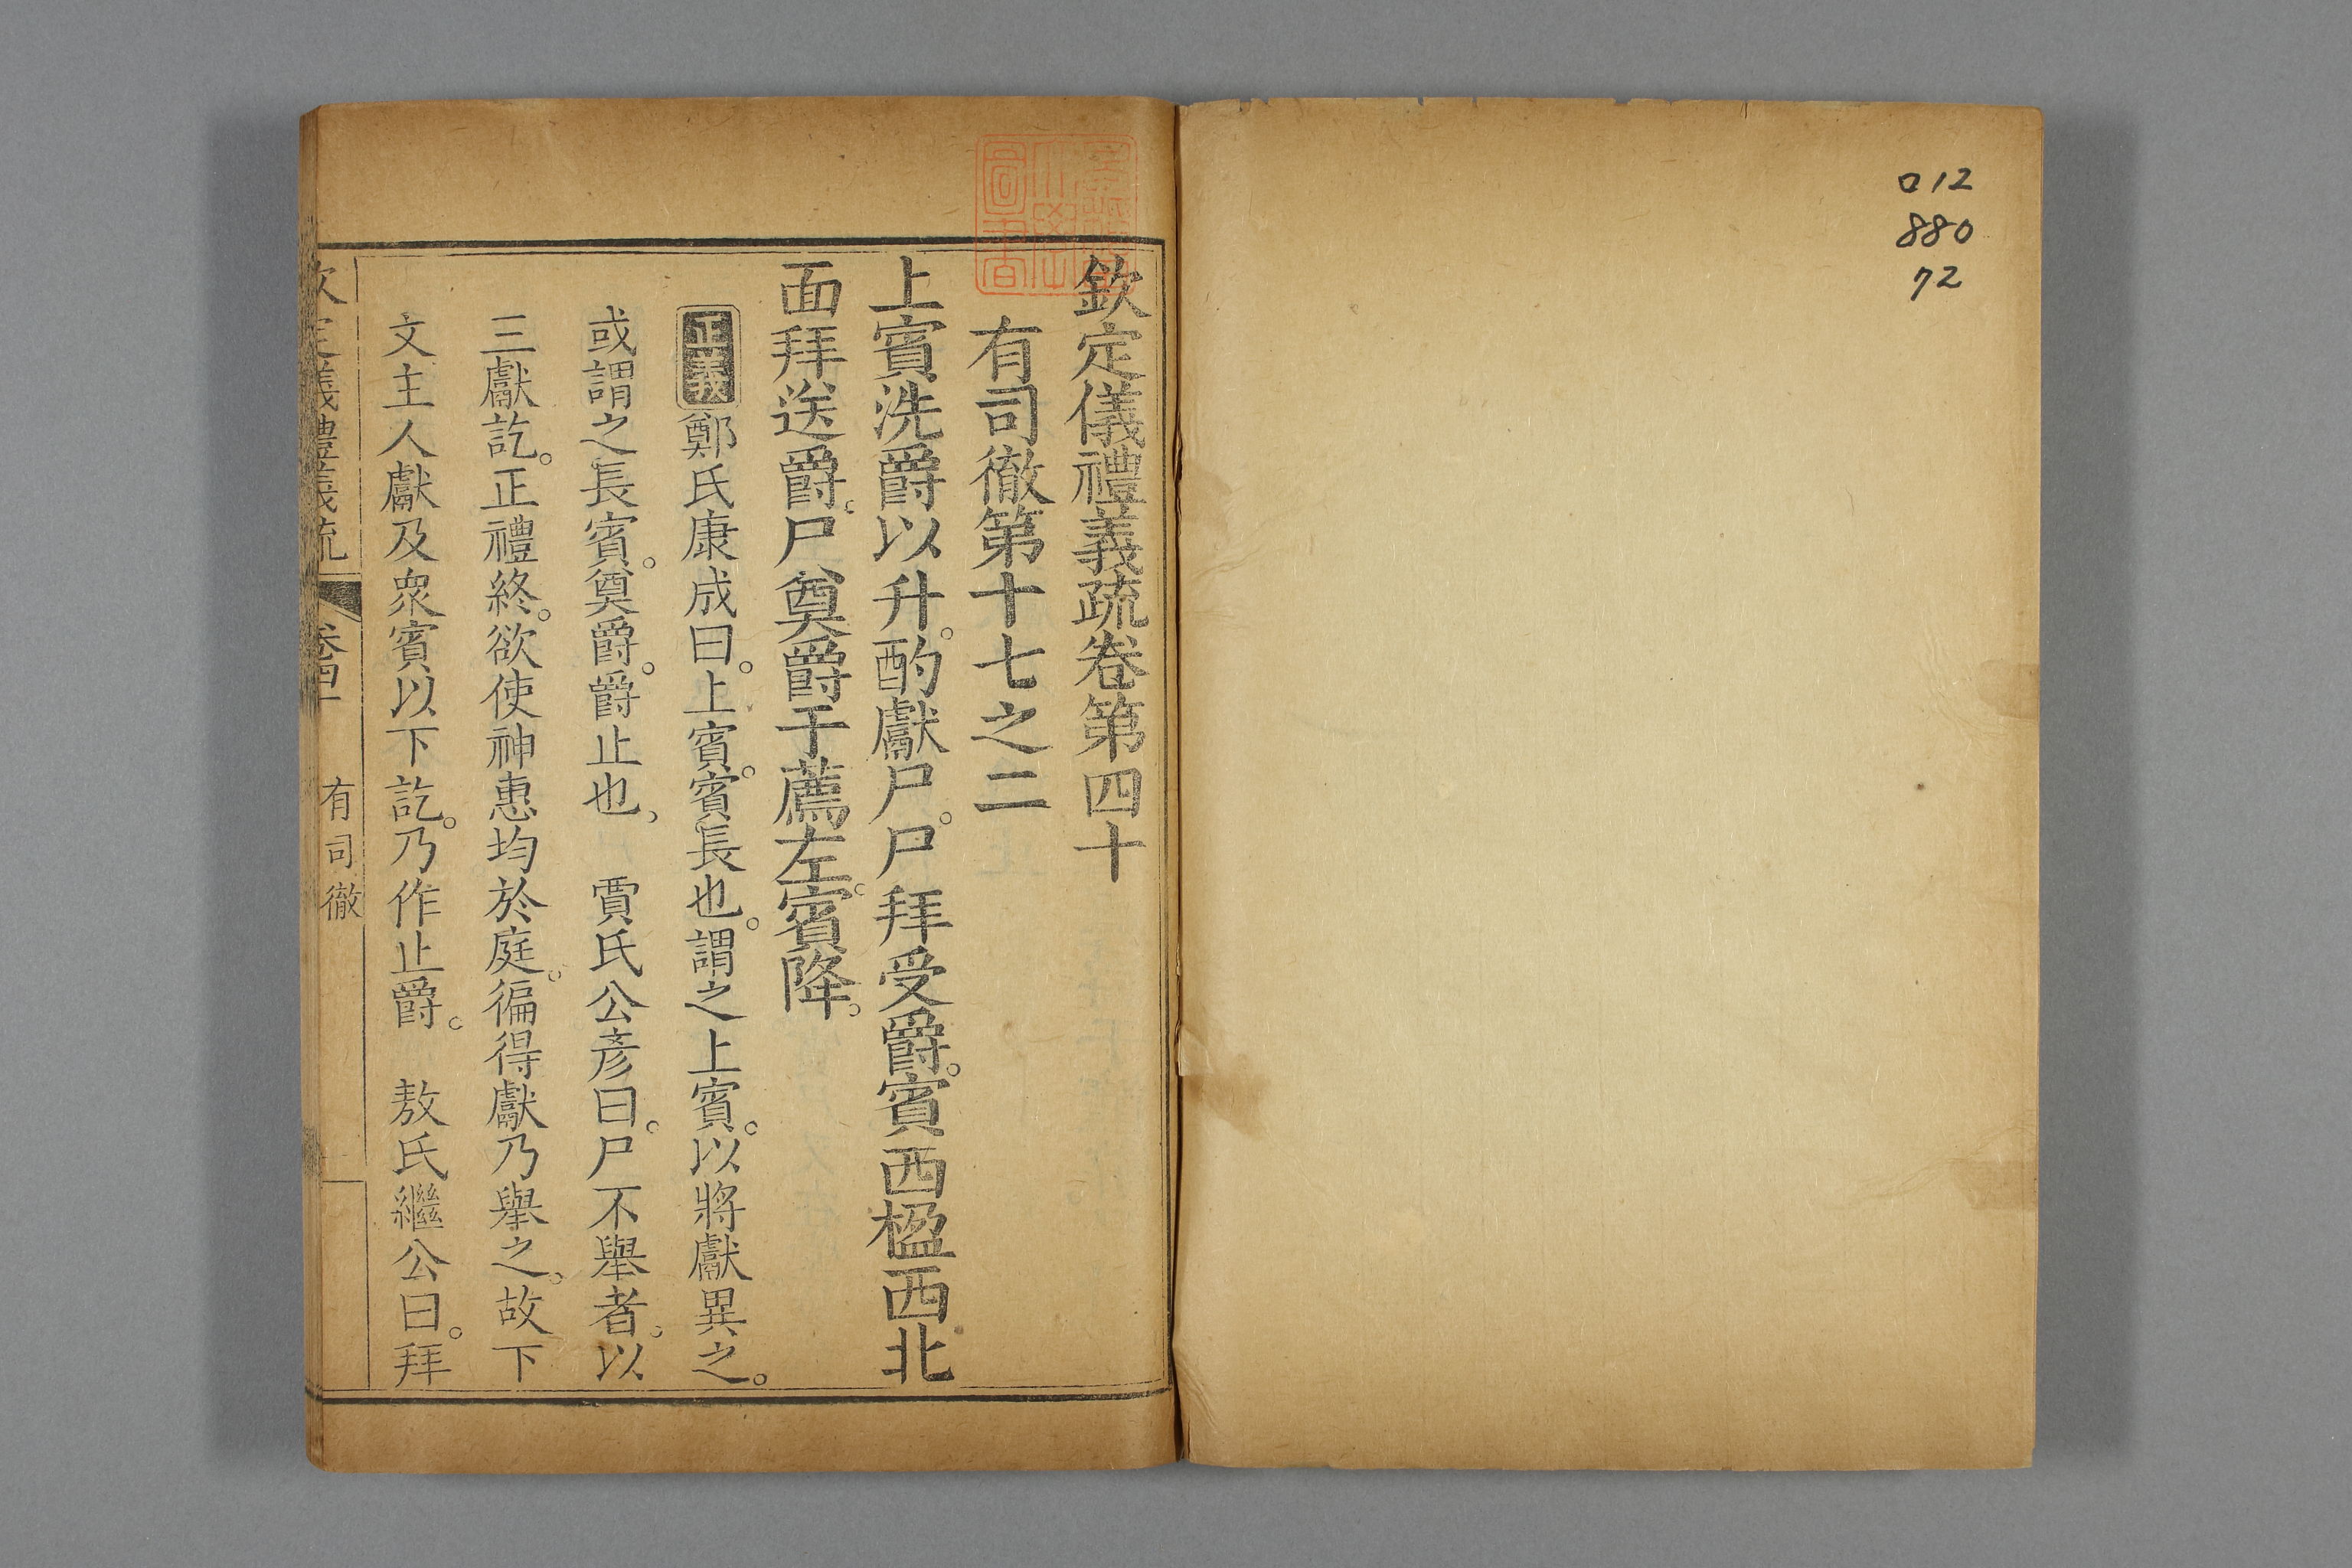 012
880
72
欽定儀禮義疏卷第四十
有司徹第十七之二
上賓洗爵以升。酌獻尸。尸拜受爵。賓西楹西北
面拜送爵。尸奠爵于薦左。賓降。
正義鄭氏康成曰。上賓。賓長也。謂之上賓。以將獻異之。
或謂之長賓。奠爵。爵止也。　賈氏公彥曰。尸不舉者。以
三獻訖。正禮終。欲使神惠均於庭。徧得獻乃舉之。故下
文主人獻及眾賓以下訖。乃作止爵。　敖氏繼公曰。拜
欽定儀禮義疏　卷四十　有司徹